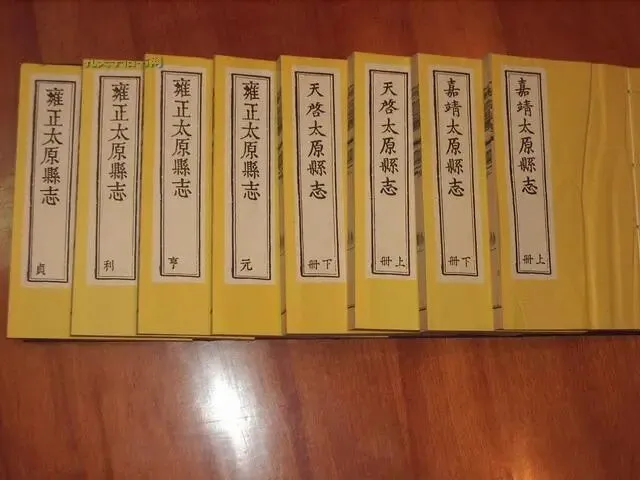 嘉靖太原縣志
上冊
嘉靖太原縣志
下冊
天啓太原縣志
上冊
天啓太原縣志
下冊
雍正太原縣志
元
雍正太原縣志
亨
雍正太原縣志
利
雍正太原縣志
貞